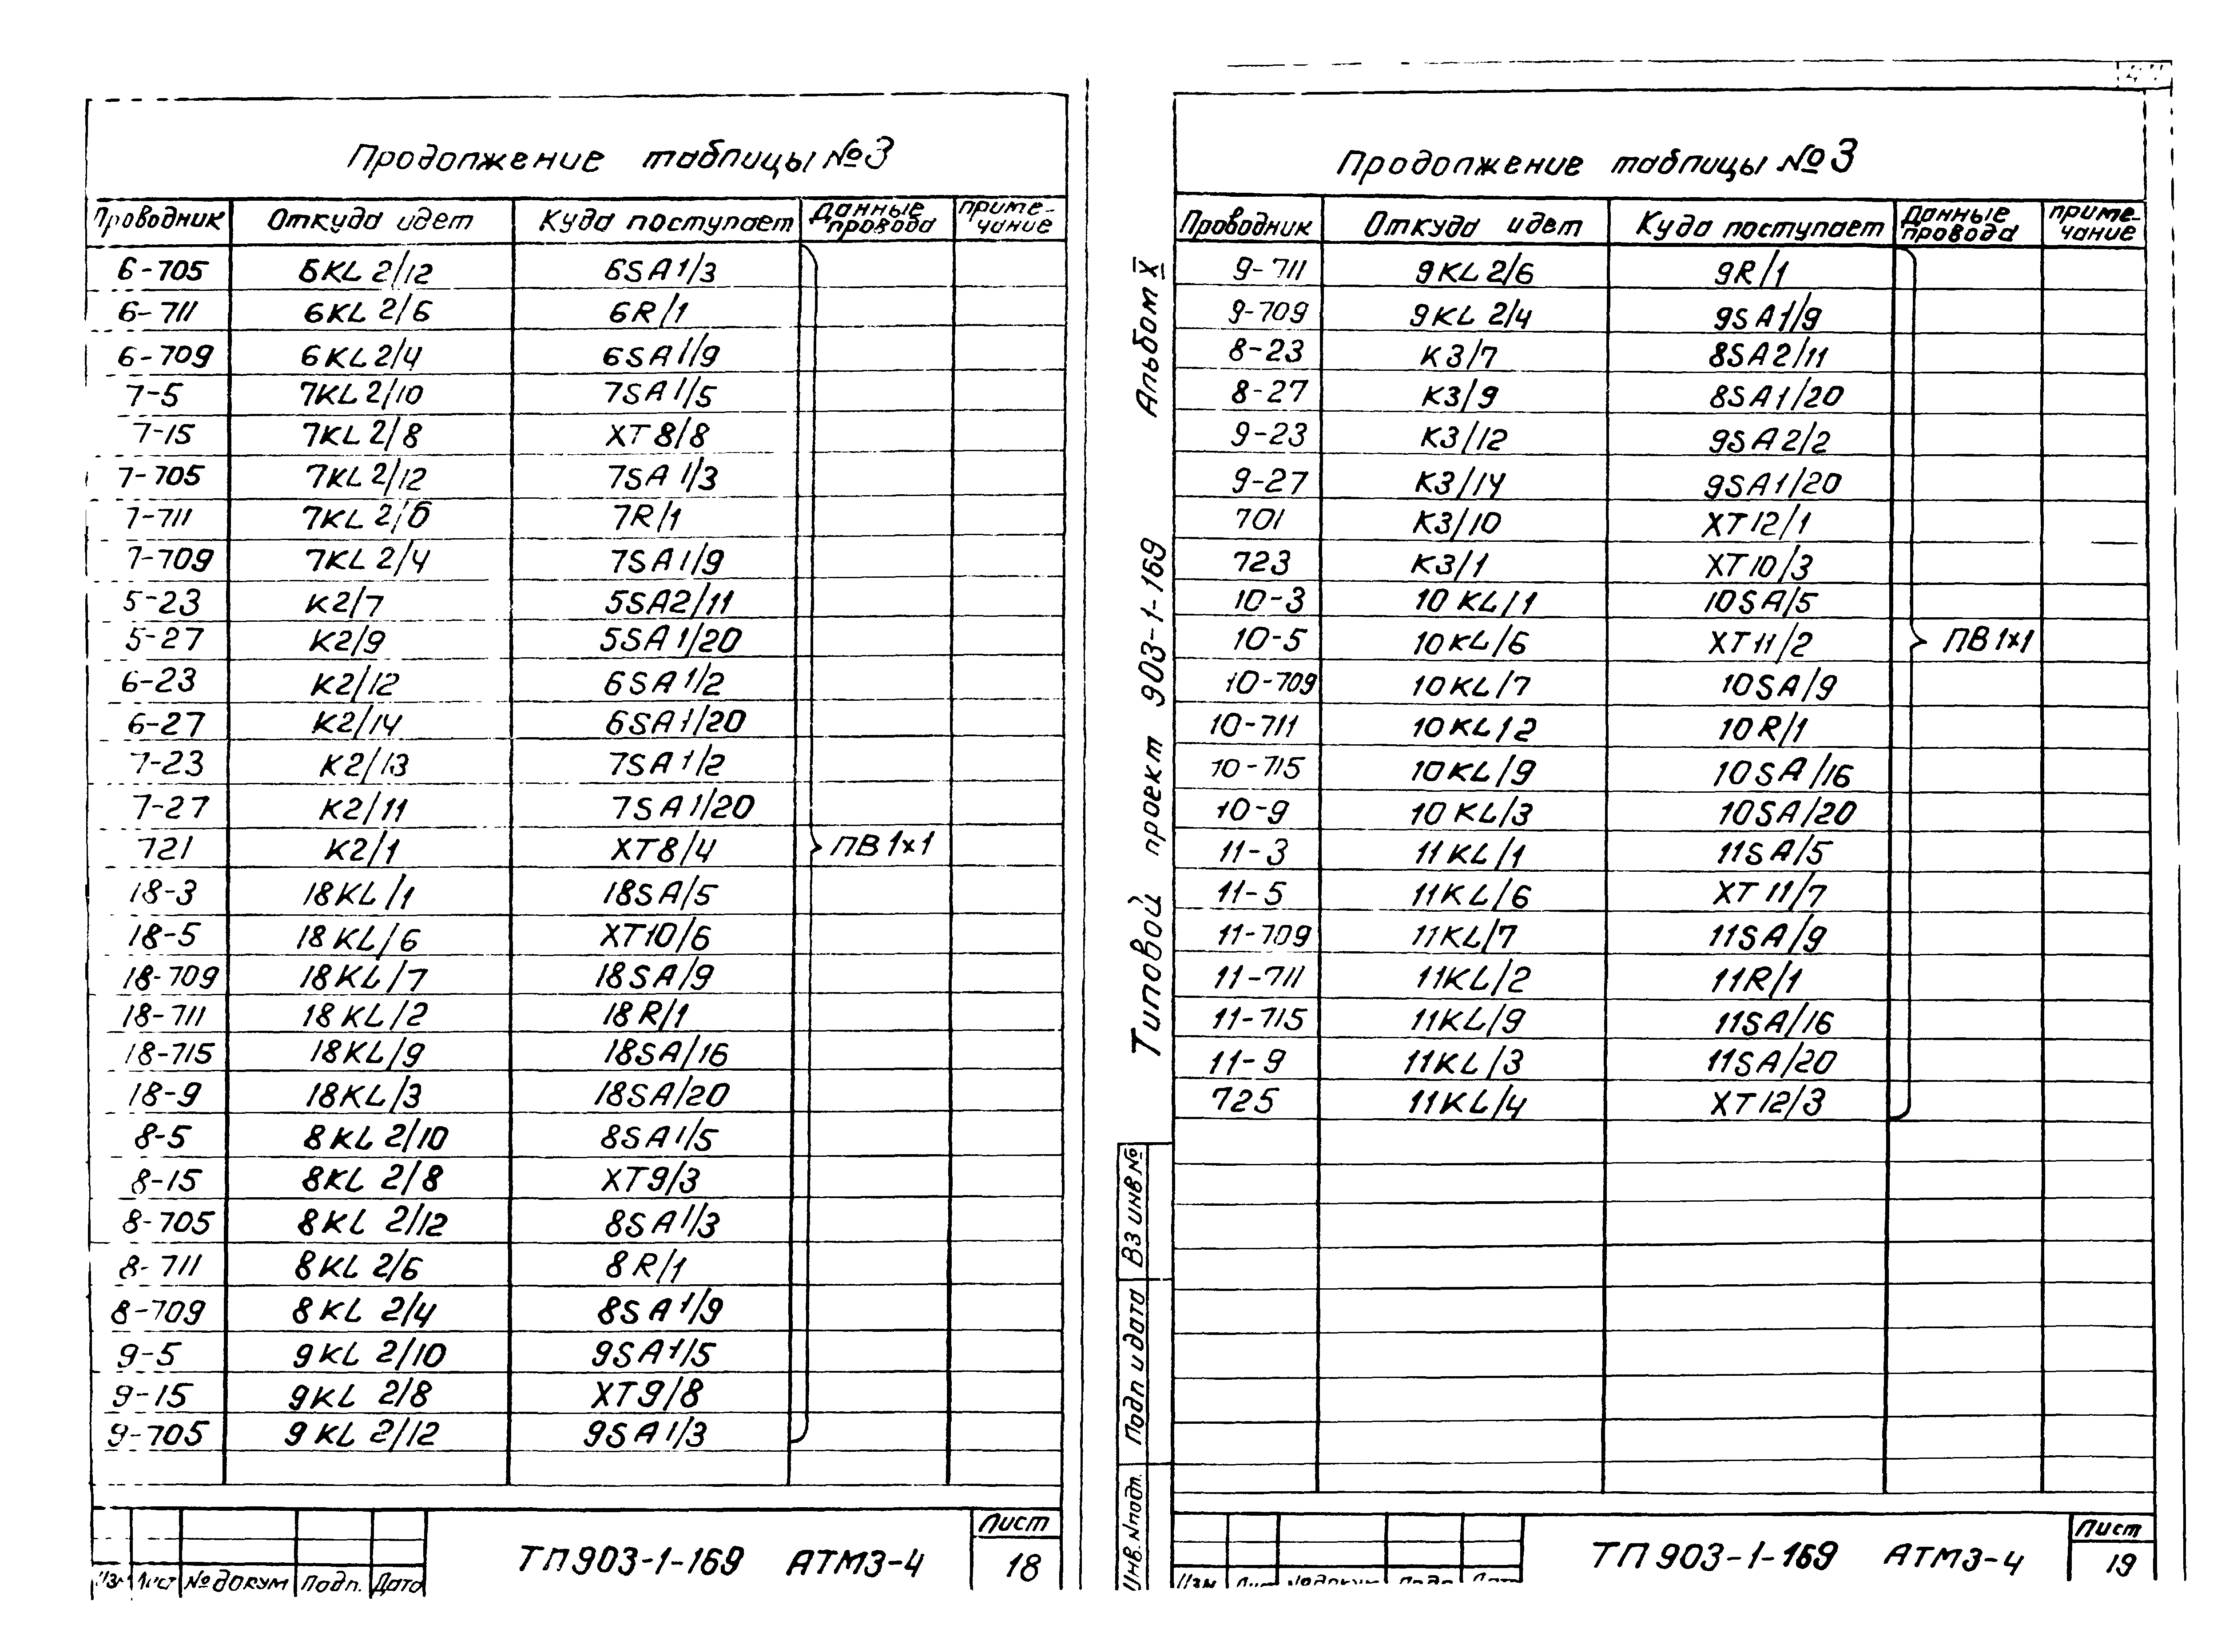 Продолжение таблицы №3
Проводник Откуда идет Куда поступает Данные провода приме-чание
6-705 6KL2/12 6SA1/3
6-711 6KL2/6 6R/1
6-709 6KL2/4 6SA1/9
7-5 7KL2/10 7SA1/5
7-15 7KL2/8 XT8/8
7-705 7KL2/12 7SA1/3
7-711 7KL2/6 7R/1
7-709 7KL2/4 7SA1/9
5-23 K2/7 5SA2/11
5-27 K2/9 5SA1/20
6-23 K2/12 6SA1/2
6-27 K2/14 6SA1/20
7-23 K2/13 7SA1/2
7-27 K2/11 7SA1/20
721 K2/1 XT8/4 ПВ1х1
18-3 18KL/1 18SA/5
18-5 18KL/6 XT10/6
18-709 18KL/7 18SA/9
18-711 18KL/2 18R/1
18-715 18KL/9 18SA/16
18-9 18KL/3 18SA/20
8-5 8KL2/10 8SA1/5
8-15 8KL2/8 XT9/3
8-705 8KL2/12 8SA1/3
8-711 8KL2/6 8R/1
8-709 8KL2/4 8SA1/9
9-5 9KL2/10 9SA1/5
9-15 9KL2/8 XT9/8
9-705 9KL2/12 9SA1/3
Изм Лист №докум Подп. Дата
ТП903-1-169 АТМ3-4
Лист
18
Типовой проект 903-1-169 Альбом X
Продолжение таблицы №3
Проводник Откуда идет Куда поступает Данные провода приме-чание
9-711 9KL2/6 9R/1
9-709 9KL2/4 9SA1/9
8-23 K3/7 8SA2/11
8-27 K3/9 8SA1/20
9-23 K3/12 9SA2/2
9-27 K3/14 9SA1/20
701 K3/10 XT12/1
723 K3/1 XT10/3
10-3 10KL/1 10SA/5
10-5 10KL/6 XT11/2 ПВ1х1
10-709 10KL/7 10SA/9
10-711 10KL/2 10R/1
10-715 10KL/9 10SA/16
10-9 10KL/3 10SA/20
11-3 11KL/1 11SA/5
11-5 11KL/6 XT11/7
11-709 11KL/7 11SA/9
11-711 11KL/2 11R/1
11-715 11KL/9 11SA/16
11-9 11KL/3 11SA/20
725 11KL/4 XT12/3
Инв.Nподп. Подп и дата ВЗ инв№
Изм Лист №докум Подп Дата
ТП903-1-169 АТМ3-4
Лист
19